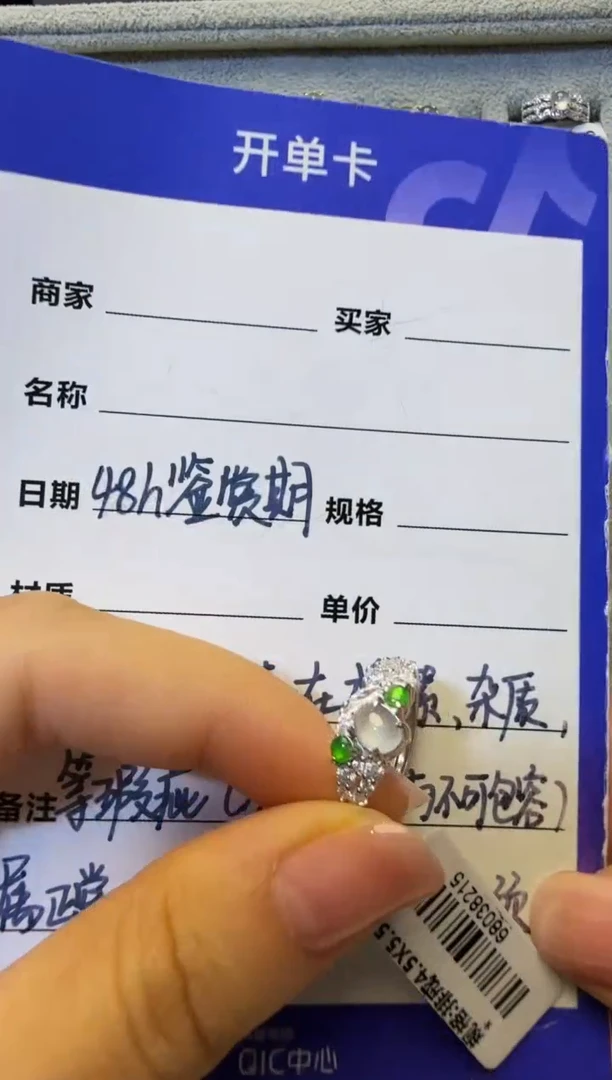 开单卡
商家 买家
名称
日期 48h鉴赏期 规格
材质 单价
在 杂质、
备注 等瑕疵( 不可包容)
属正常
68038215
规格:排戒4.5X5.5
QIC中心